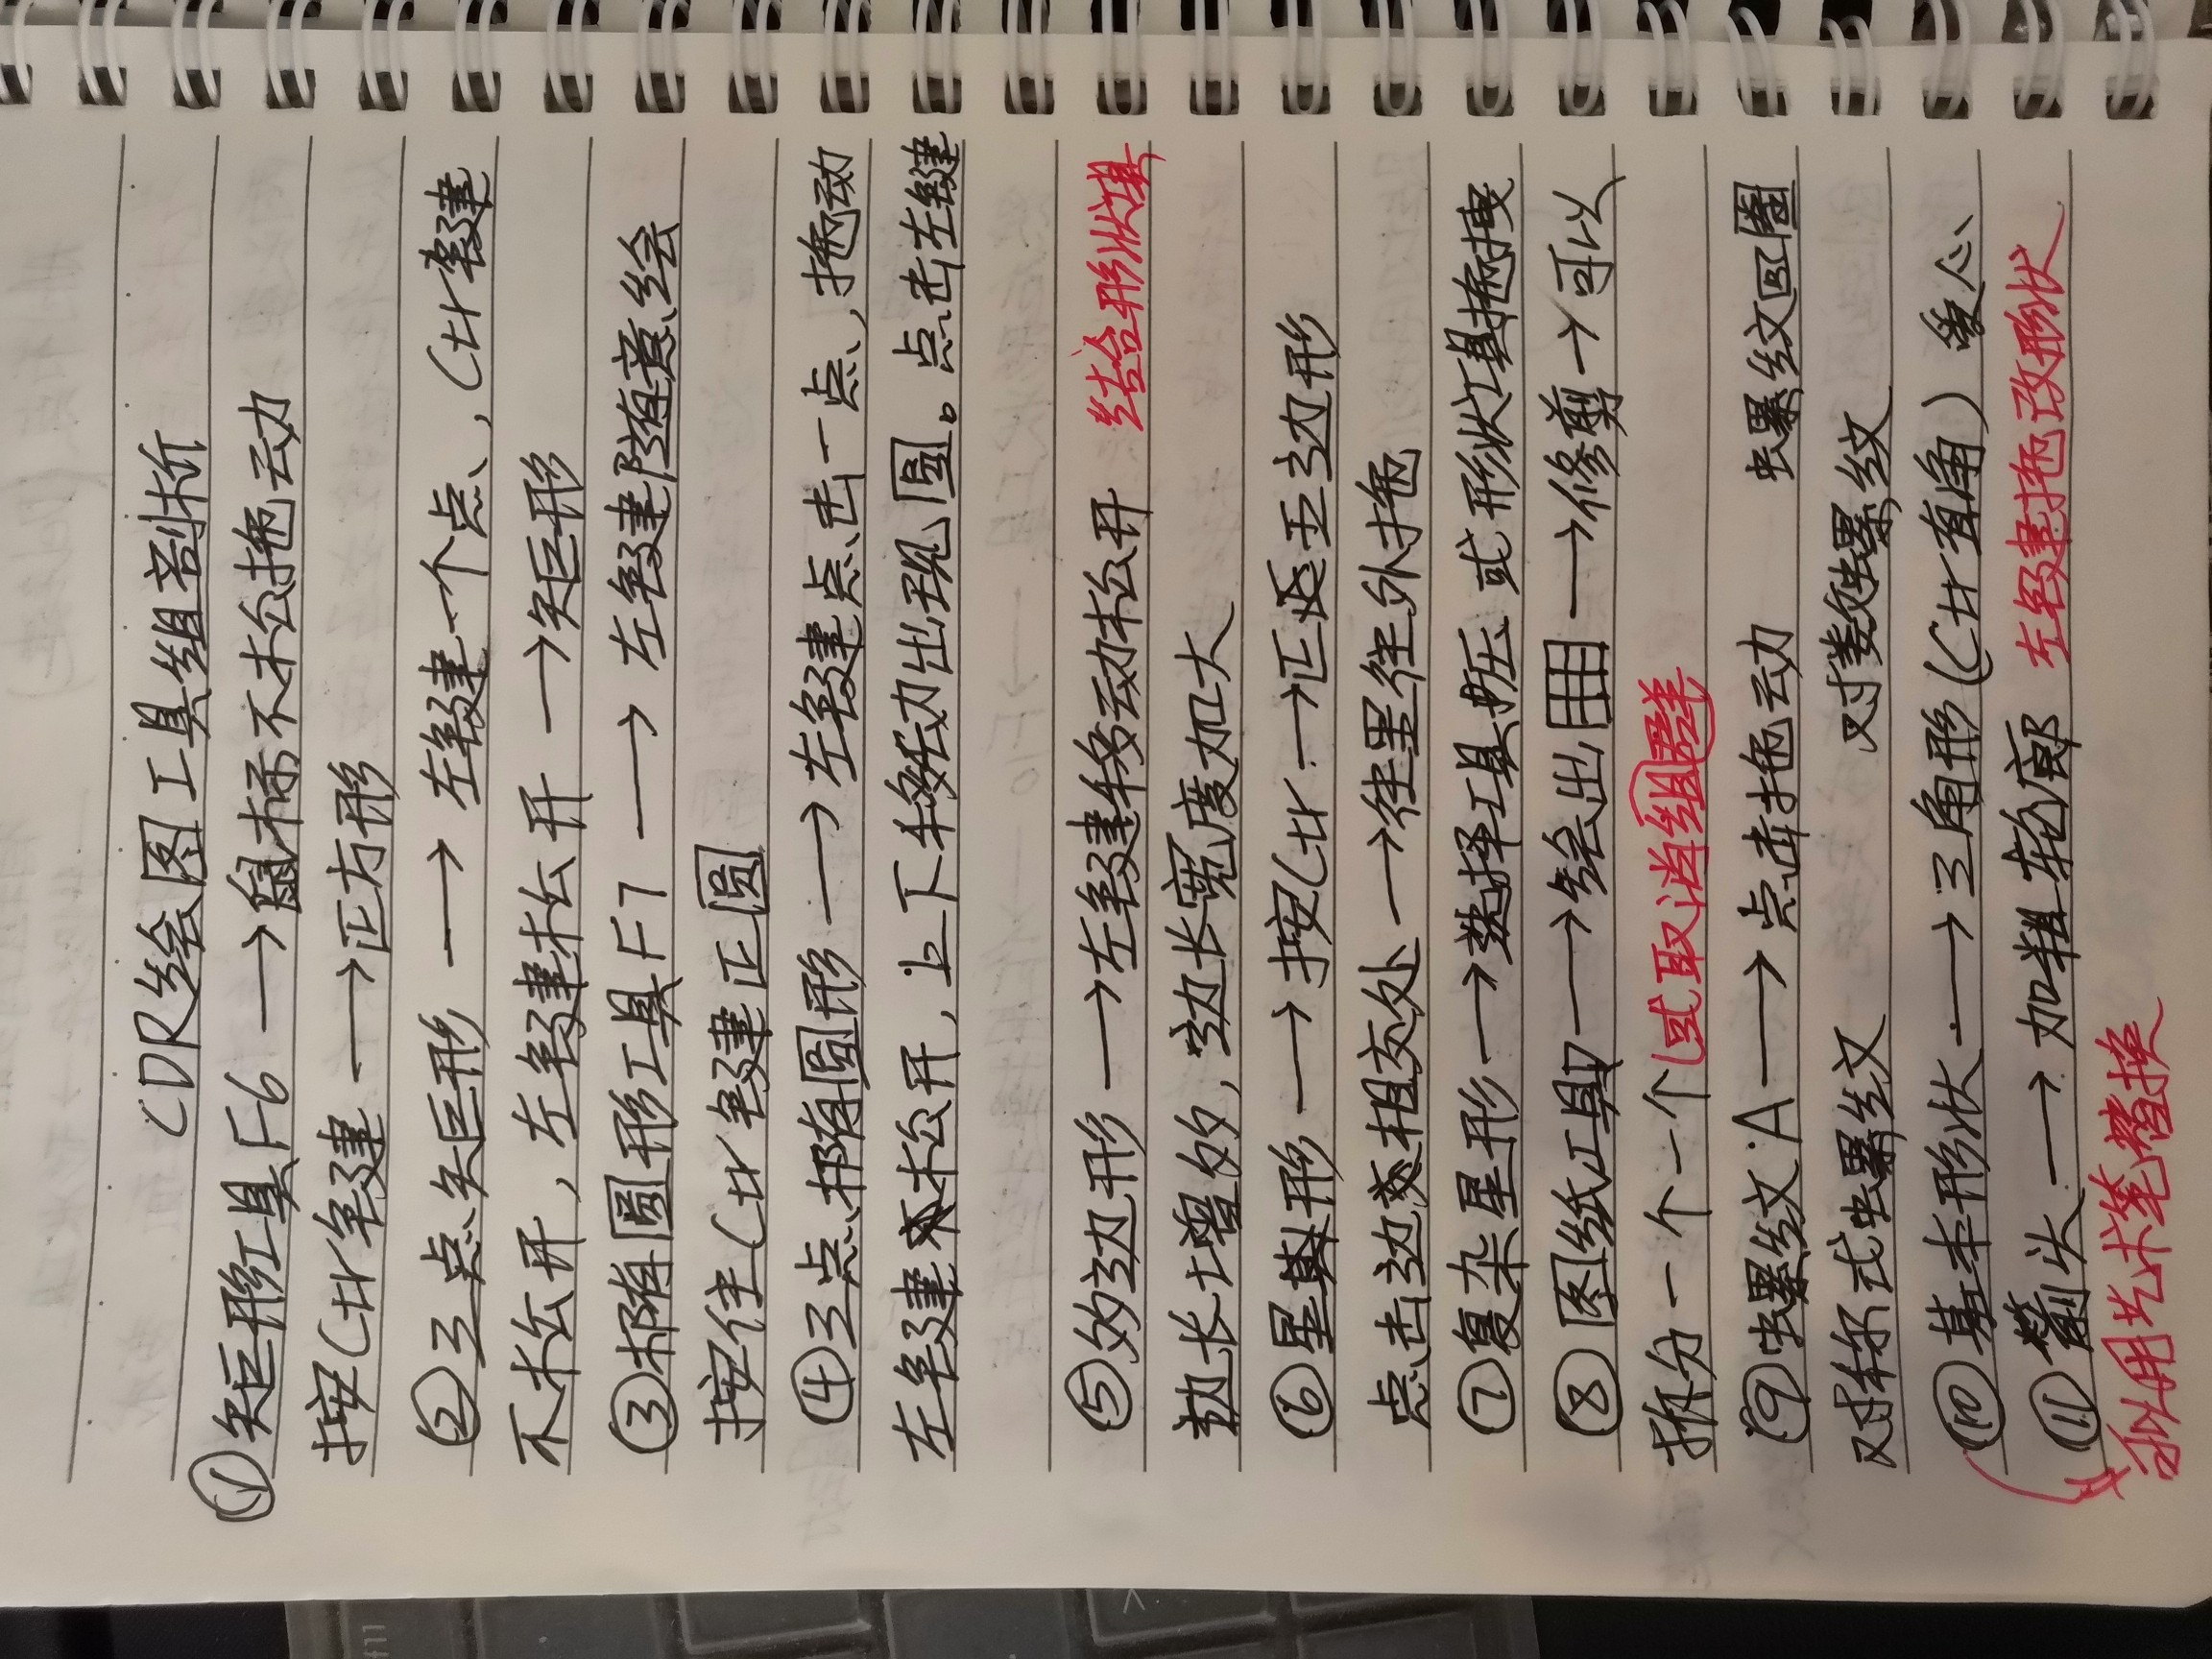 CDR绘图工具组剖析
①矩形工具F6 → 鼠标不松拖动
按Ctr笔建 → 正方形
②3点矩形 → 左笔建一个点，Ctr笔建
不松开，左笔建松开 → 矩形
③椭圆形工具F7 → 左笔建随意绘
按住Ctr笔建正圆
④3点椭圆形 → 左笔建点击一点，拖动
左笔建不松开，上下移动出现圆。点击左键
⑤多边形 → 左笔建移动松开 结合形状填
边长增多，边长宽度加大
⑥星形 → 按Ctr → 正五边形
点击边相交处 → 往里往外拖
⑦复杂星形 → 选择工具挤压 或形状工具拖拽
⑧图纸工具 → 绘出田 → 修剪 → 可以
拆分一个一个(或取消组群
⑨螺纹A → 点击拖动 螺纹回圈
对称式螺纹 对数螺纹
⑩基本形状 → 3角形(Ctr直角)重心
⑪箭头 → 加粗轮廓 左笔建拖改形状
利用艺术笔替换
f11